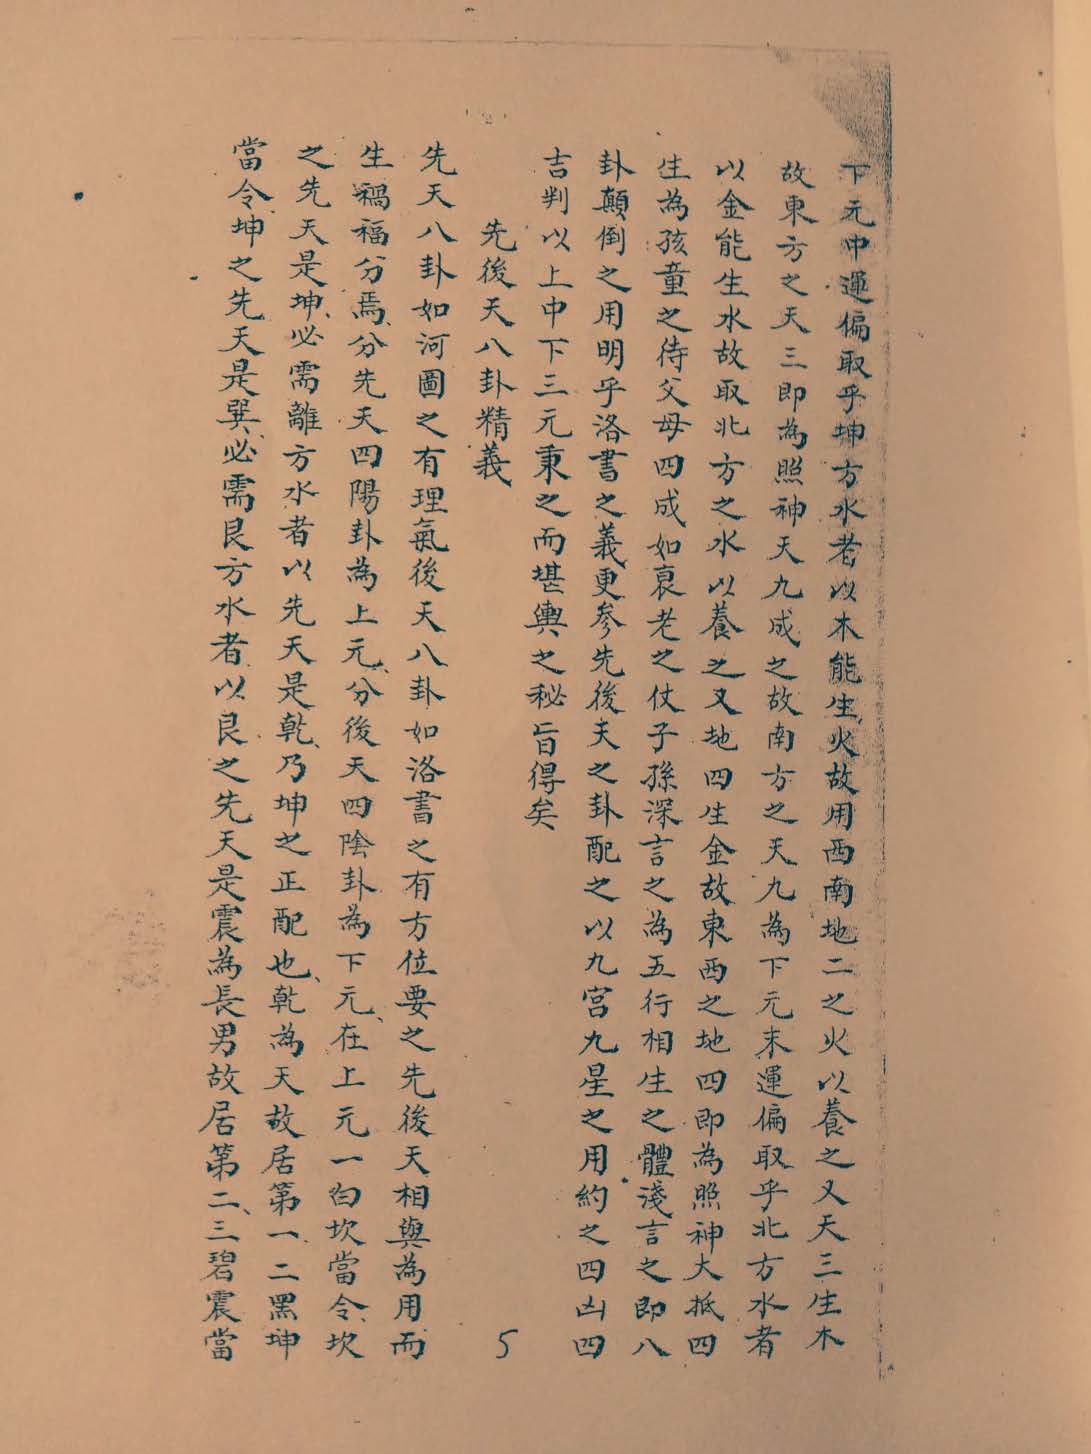 下元中運偏取乎坤方水者以木能生火故用西南地二之火以養之又天三生木
故東方之天三即為照神天九成之故南方之天九為下元末運偏取乎北方水者
以金能生水故取北方之水以養之又地四生金故東西之地四即為照神大抵四
生為孩童之待父母四成如衰老之仗子孫深言之為五行相生之體淺言之即八
卦顛倒之用明乎洛書之義更參先後天之卦配之以九宮九星之用約之四凶四
吉判以上中下三元秉之而堪輿之秘旨得矣
先後天八卦精義
先天八卦如河圖之有理氣後天八卦如洛書之有方位要之先後天相與為用而
生禍福分焉、分先天四陽卦為上元、分後天四陰卦為下元、在上元一白坎當令、坎
之先天是坤、必需離方水者以先天是乾、乃坤之正配也、乾為天故居第一二黑坤
當令、坤之先天是巽、必需艮方水者、以艮之先天是震為長男故居第二、三碧震當
5